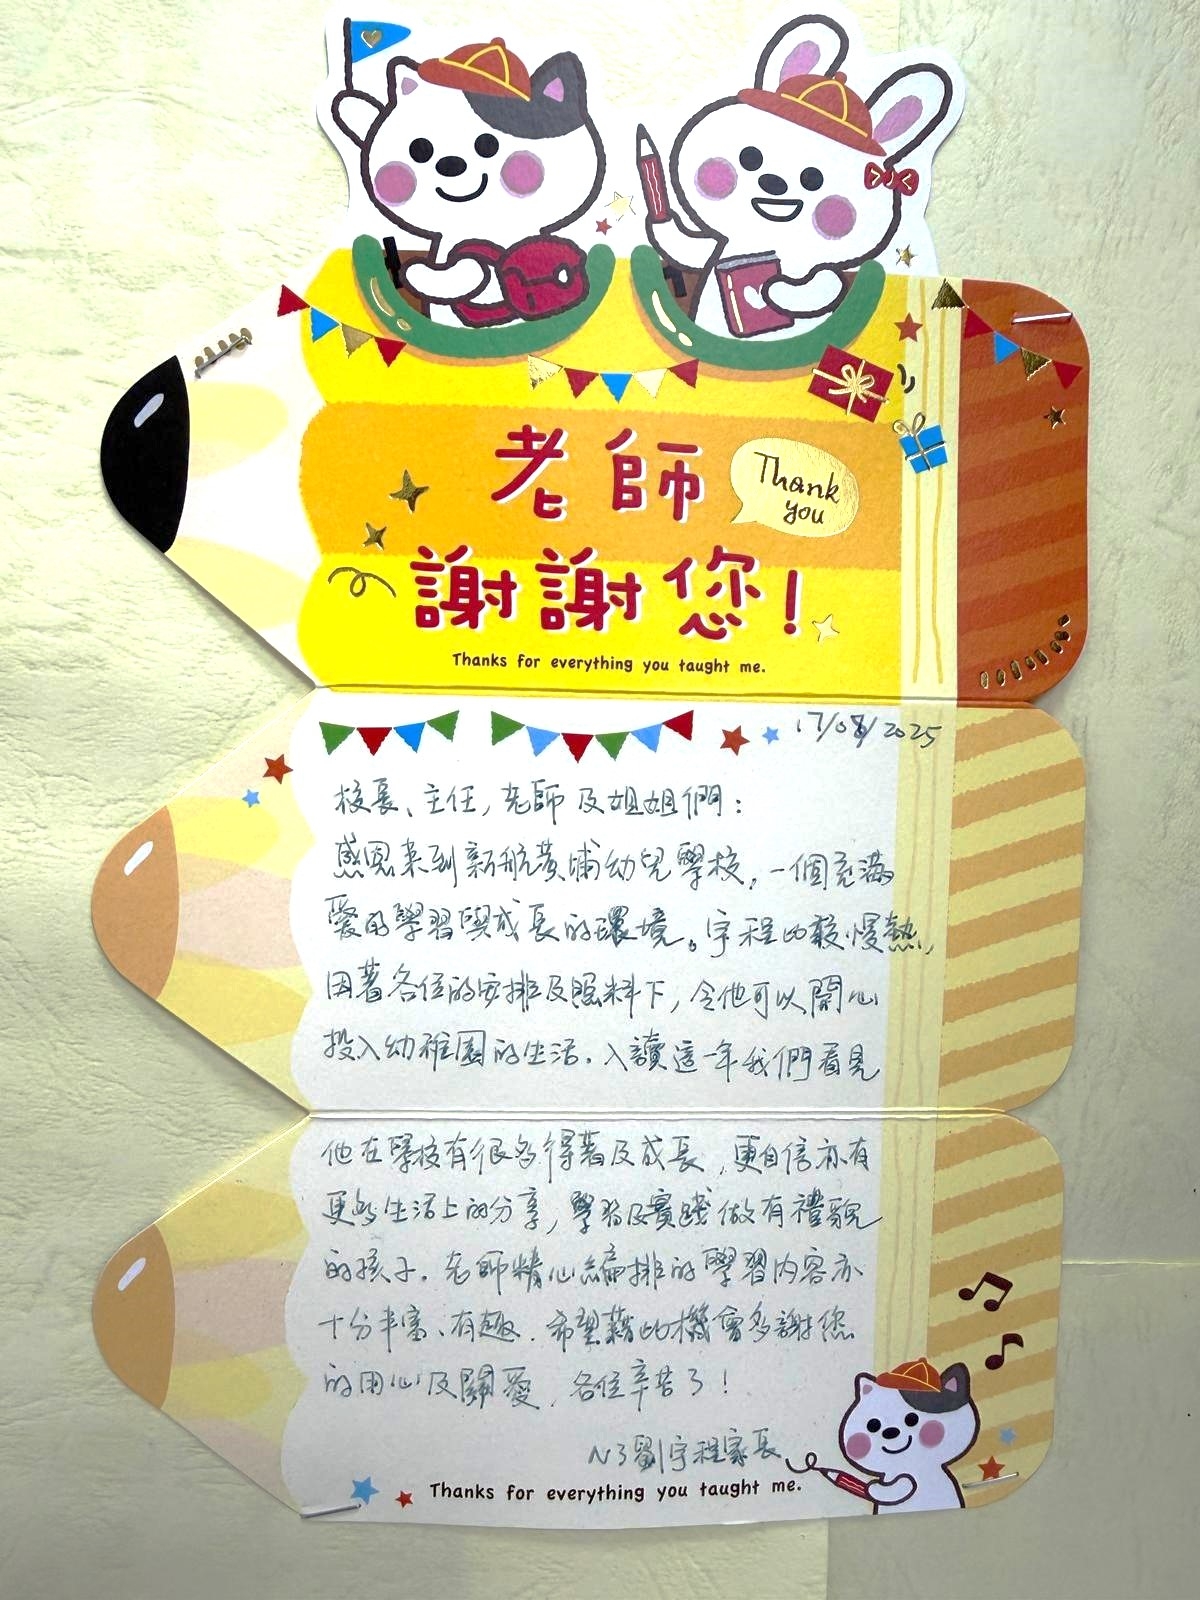 老師
Thank
you
謝謝您!
Thanks for everything you taught me.
17/08/2025
校長、主任,老師及姐姐們:
感恩來到新航黃埔幼兒學校,一個充滿
愛的學習與成長的環境。宇程比較慢熱,
因著各位的安排及照料下,令他可以開心
投入幼稚園的生活.入讀這一年我們看見
他在學校有很多得著及成長,更自信亦有
更多生活上的分享,學習及實踐做有禮貌
的孩子.老師精心編排的學習內容亦
十分丰富、有趣.希望藉此機會多謝您
的用心及關愛,各位辛苦了!
N3劉宇程家長
Thanks for everything you taught me.